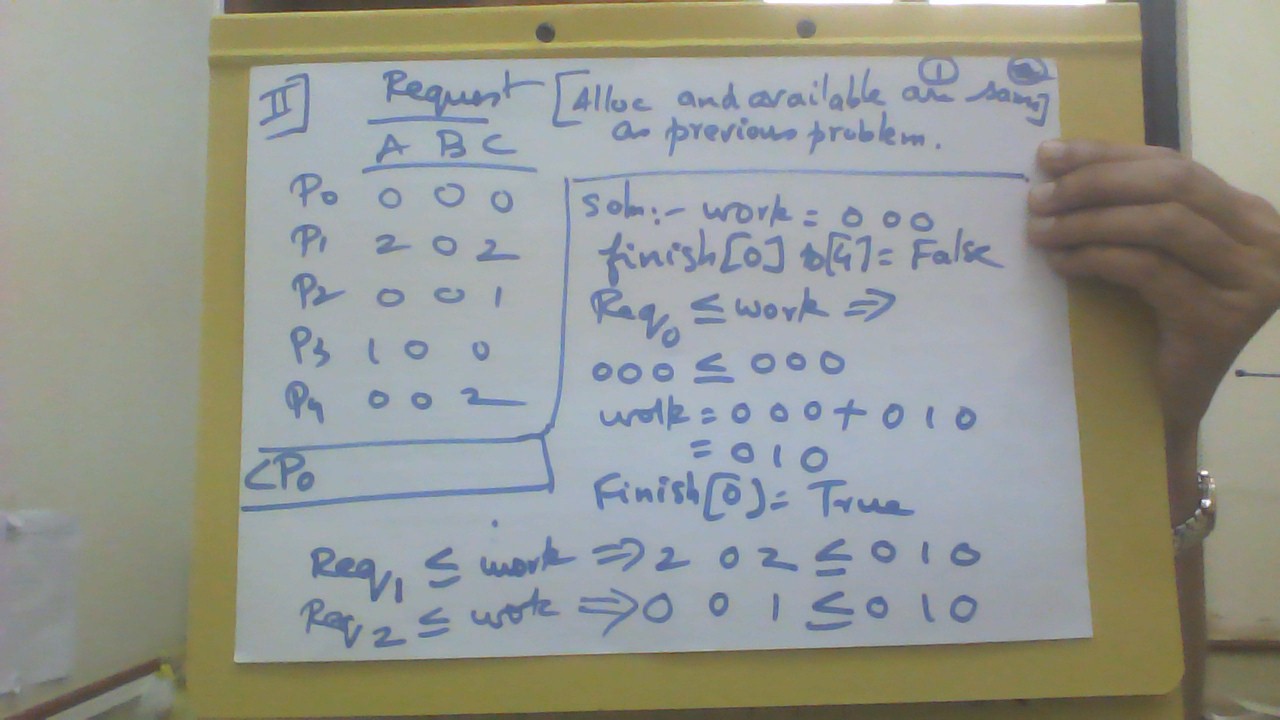 II]
Request [Alloc and available are same]
1
as previous problem.
A B C
P0 0 0 0
P1 2 0 2
P2 0 0 1
P3 1 0 0
P4 0 0 2
<P0
soln:- work = 0 0 0
finish[0] to [4] = False
Req0 ≤ work ⇒
000 ≤ 000
work = 0 0 0 + 0 1 0
= 0 1 0
Finish[0] = True
Req1 ≤ work ⇒ 2 0 2 ≤ 0 1 0
Req2 ≤ work ⇒ 0 0 1 ≤ 0 1 0